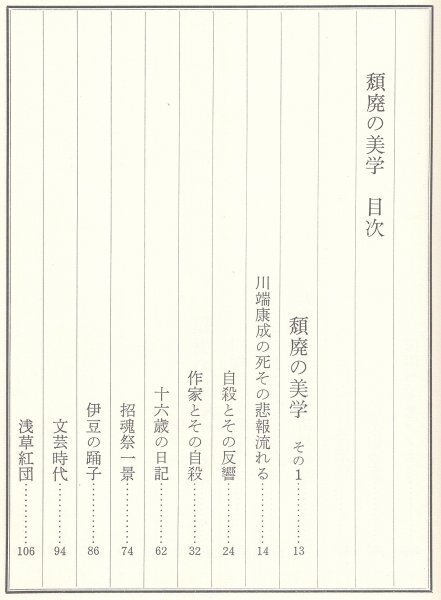 頽廃の美学　目次
頽廃の美学　その1…………13
川端康成の死その悲報流れる…………14
自殺とその反響…………24
作家とその自殺…………32
十六歳の日記…………62
招魂祭一景…………74
伊豆の踊子…………86
文芸時代…………94
浅草紅団…………106